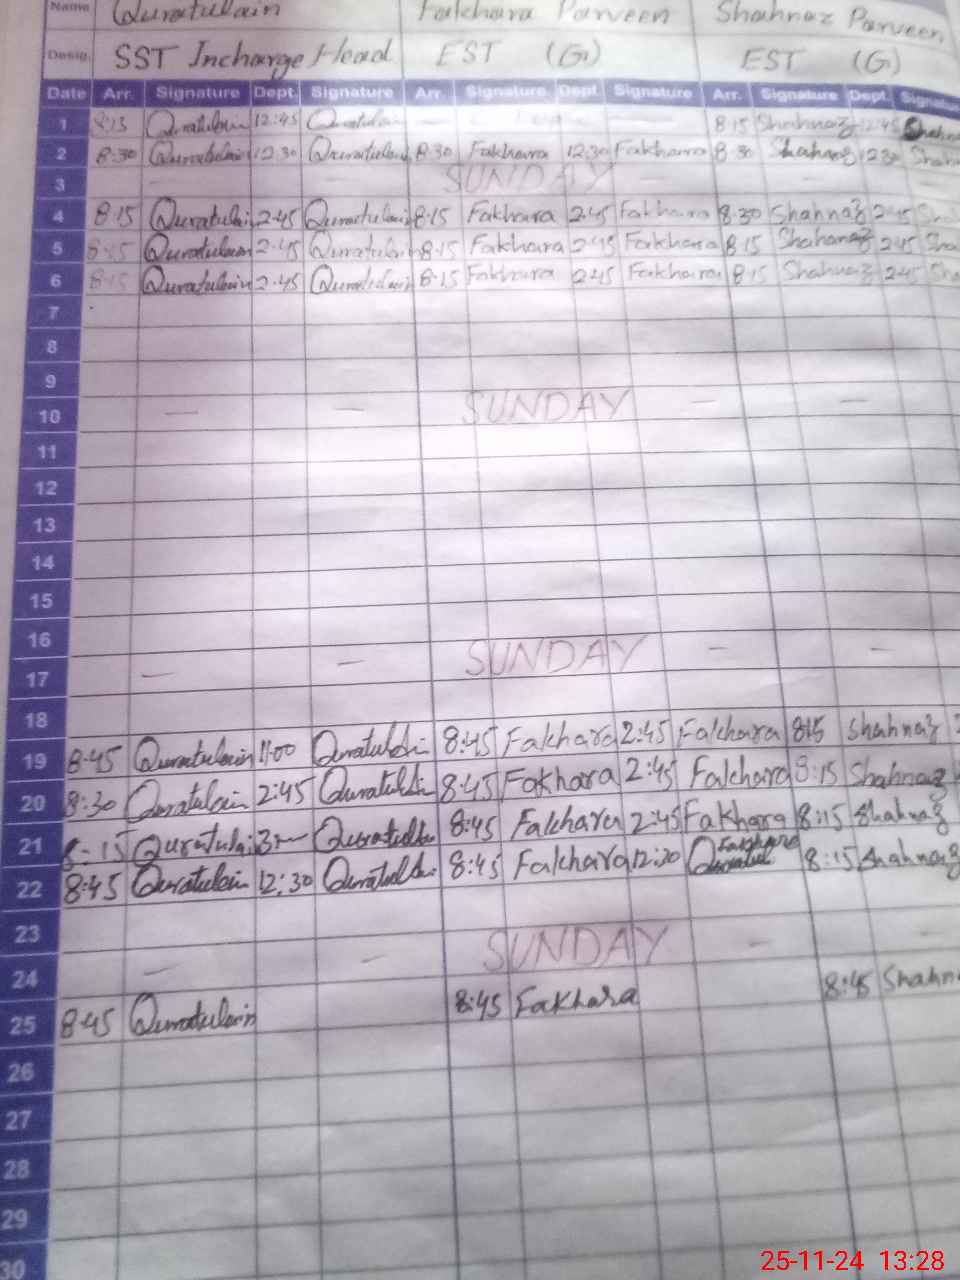 Name Quratulain Fakhara Parveen Shahnaz Parveen
Desig. SST Incharge Head EST (G) EST (G)
Date Arr. Signature Dept. Signature Arr. Signature Dept Signature Arr. Signature Dept. Signature
1 8:15 Quratulain 12:45 Quratulain 8:15 Shahnaz 12:45
2 8:30 Quratulain 12:30 Quratulain 8:30 Fakhara 12:30 Fakhara 8:30 Shahnaz 12:30 Shah
3 SUNDAY
4 8:15 Quratulai 2:45 Quratulain 8:15 Fakhara 2:45 Fakhara 8:30 Shahnaz 2:45 Sh
5 8:15 Quratulain 2:45 Quratulain 8:15 Fakhara 2:45 Fakhara 8:15 Shahanaz 2:45 Sha
6 8:15 Quratulain 2:45 Quratulain 8:15 Fakhara 2:45 Fakhara 8:15 Shahnaz 2:45 Sha
7
8
9
10 — — SUNDAY — —
11
12
13
14
15
16
17 — — SUNDAY — —
18
19 8:45 Quratulain 11:00 Quratulain 8:45 Fakhara 2:45 Fakhara 8:15 Shahnaz
20 8:30 Quratulain 2:45 Quratulain 8:45 Fakhara 2:45 Fakhara 8:15 Shahnaz
21 8:15 Quratulai Quratulain 8:45 Fakhara 2:45 Fakhara 8:15 Shahnaz
22 8:45 Quratulain 12:30 Quratulain 8:45 Fakhara 12:30 Fakhara 8:15 Shahnaz
23
24 — — SUNDAY — —
25 8:45 Quratulain 8:45 Fakhara 8:45 Shahn
26
27
28
29
30
25-11-24 13:28